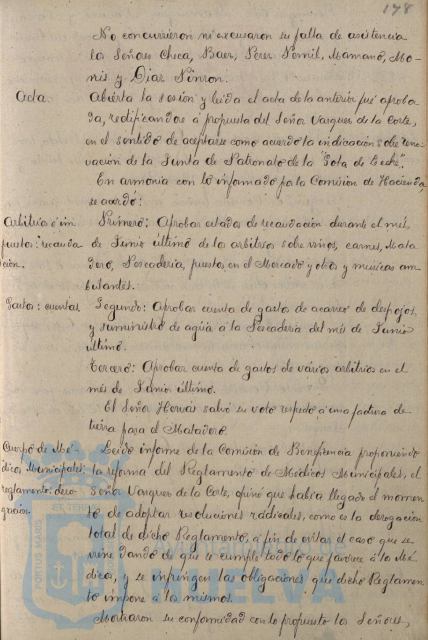 178
No concurrieron ni excusaron su falta de asistencia
los Señores Checa, Baer, Perez Pernil, Mamano, Mo-
nis y Diaz Pinzon.
Acta.
Abierta la sesión y leida el acta de la anterior fué aproba-
da, rectificandose á propuesta del Señor Vazquez de la Corte,
en el sentido de aceptarse como acuerdo la indicacion sobre reno-
vación de la Junta de Patronato de la "Gota de Leche".
En armonia con lo informado por la Comisión de Hacienda,
se acordó:
Arbitrios é im
puestos: recauda
ción.
Primero: Aprobar estados de recaudación durante el mes
de Junio último de los arbitrios sobre vinos, carnes, Mata
dero, Pescaderia, puestos en el Mercado y otros y músicas am-
bulantes.
Gastos: cuentas.
Segundo: Aprobar cuenta de gastos de acarreo de despojos,
y suministro de agua á la Pescaderia del mes de Junio
último.
Tercero: Aprobar cuenta de gastos de varios arbitrios en el
mes de Junio último.
El Señor Hervás salvó su voto respecto á una factura de
tierra para el Matadero.
Cuerpo de Mé-
dicos Municipales:
reglamento: dero-
gación.
Leido informe de la Comisión de Beneficencia proponiendo
la reforma del Reglamento de Médicos Municipales, el
Señor Vazquez de la Corte, opinó que habia llegado el momen-
to de adoptar resoluciones radicales, como es la derogación
total de dicho Reglamento, á fin de evitar el caso que se
viene dando de que se cumple todo lo que favorece á los Mé-
dicos, y se infringen las obligaciones que dicho Reglamen-
to impone á los mismos.
Mostraron su conformidad con lo propuesto los Señores,
PORTUS MARIS
ET TERRÆ
HUELVA